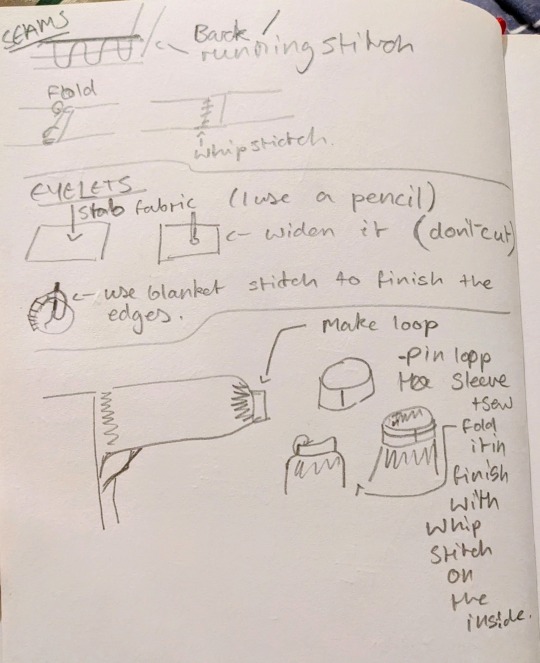 SEAMS
Back/
running stitch
Fold
whipstictch.
EYELETS
stab fabric (I use a pencil)
widen it (don't cut)
use blanket stitch to finish the
edges.
Make loop
-Pin lopp
sleeve
+ sew
fold
it in
finish
with
whip
stitch
on
the
inside.